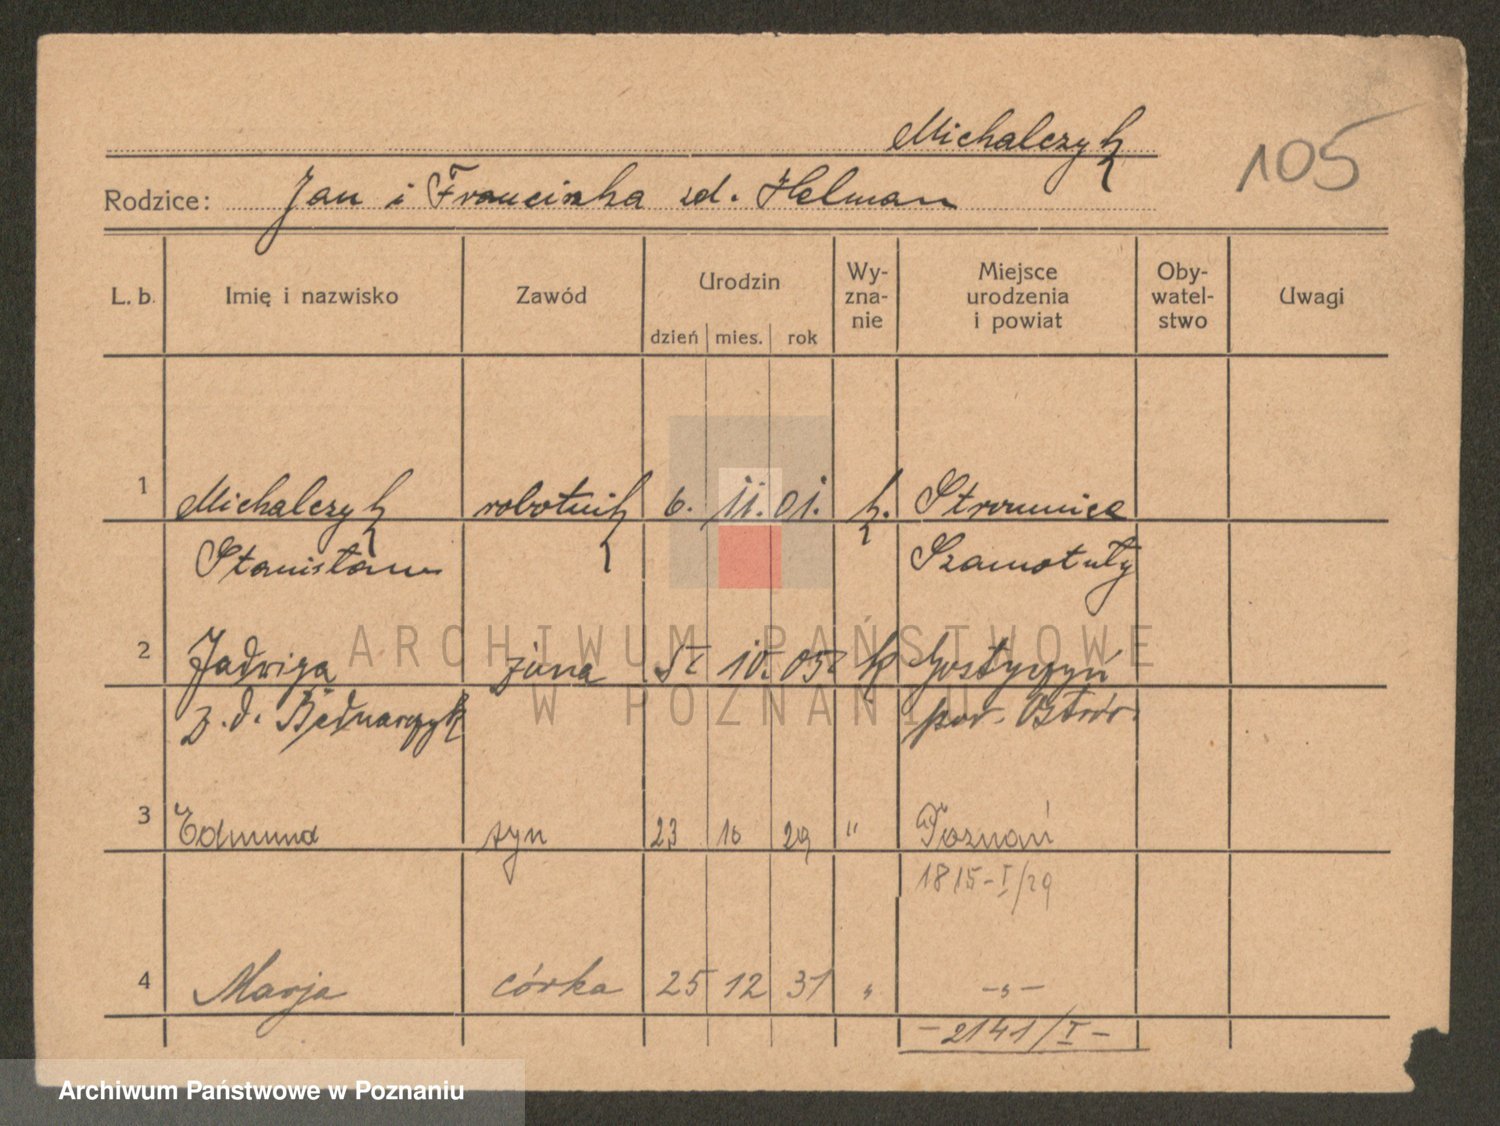 Michalczyk
105
Rodzice: Jan i Franciszka zd. Helman
L. b. Imię i nazwisko Zawód Urodzin Wy- Miejsce Oby- Uwagi
zna- urodzenia watel-
dzień mies. rok nie i powiat stwo
1 Michalczyk robotnik 6. 11. 01. k.
Stanisław Szamotuły
2 Jadwiga żona 5 10. 05 k Gostyczyń
z. d. Bednarczyk pow. Ostrów
3 Edmund syn 23 10 29 " Poznań
1815-I/29
4 Marja córka 25 12 31 " -"-
-2141/I-
ARCHIWUM PAŃSTWOWE
W POZNANIU
Archiwum Państwowe w Poznaniu